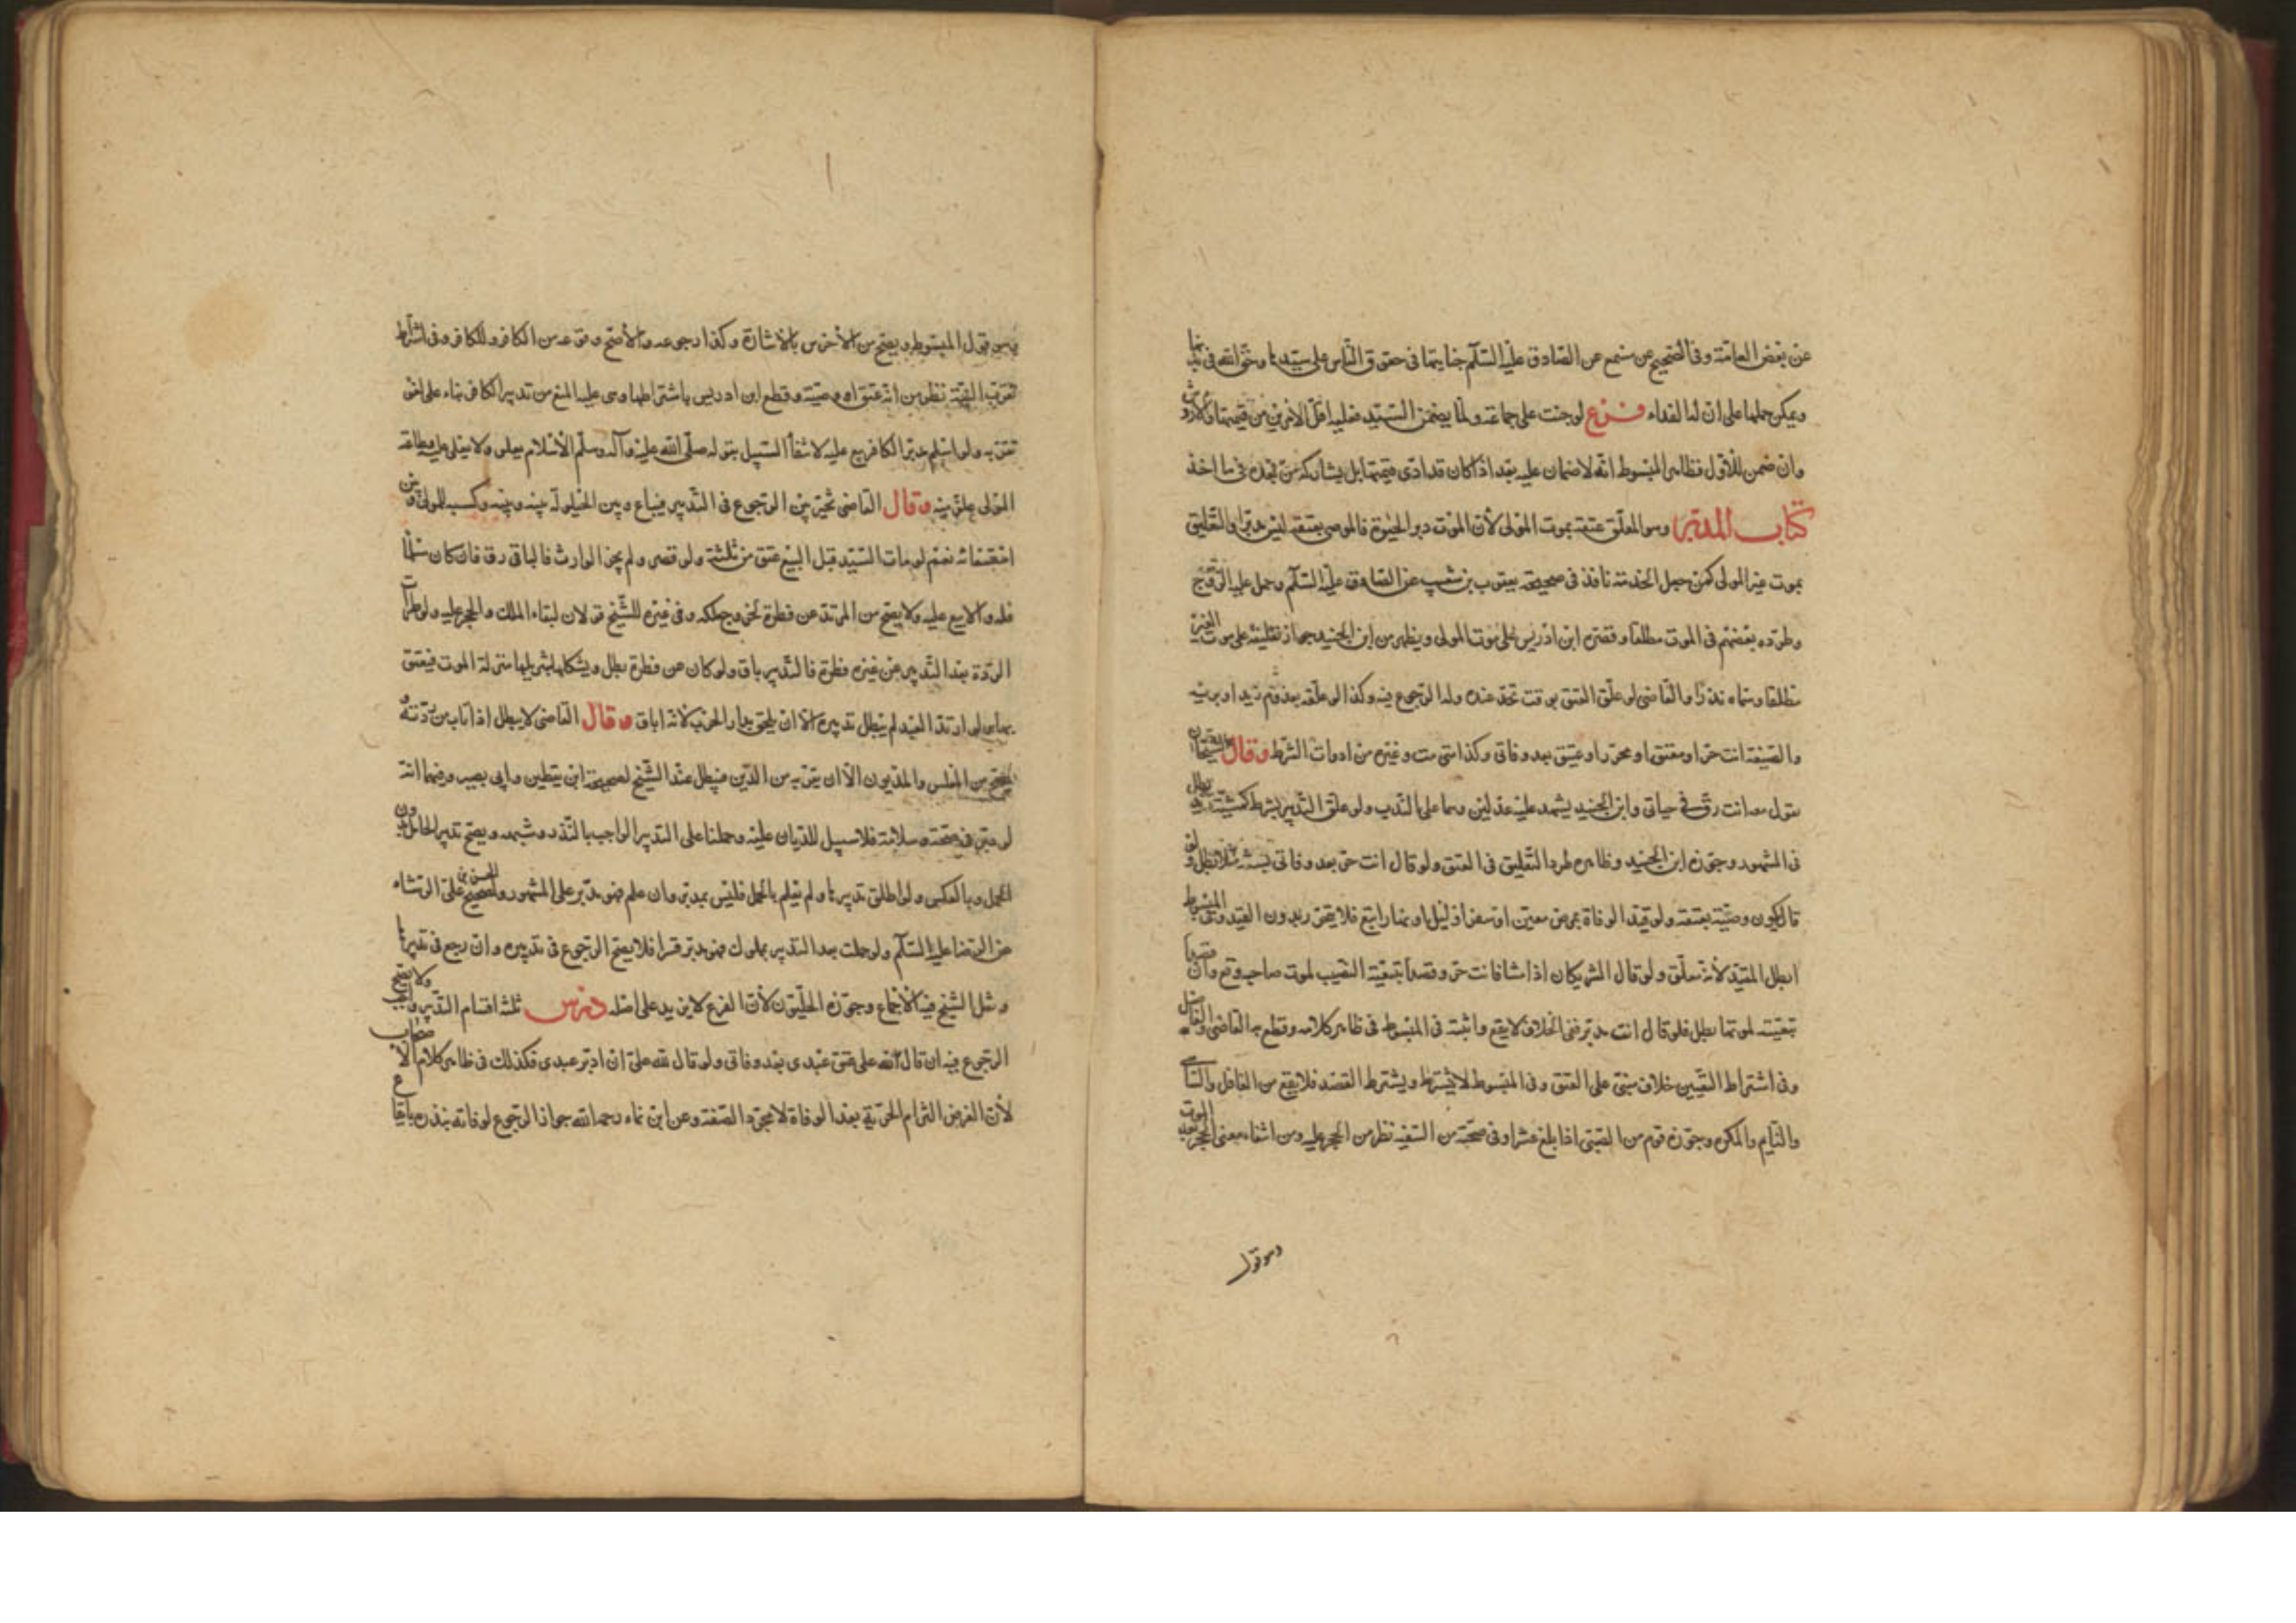 عن بعض العامّة وفي الصحيح عن مسمع عن الصادق عليه السّلام جنايتها في حقوق النّاس على سيّدها وحقّ الله في بدنها
ويمكن حملها على ان له الفداء فرع لو جنت على جماعة ولمّا يضمن السّيّد فعليه اقلّ الامرين من قيمتها والارش
وان ضمن للاوّل فظاهر المبسوط انّه لا ضمان عليه بعد اذا كان قد ادّى قيمتها بل يشارك من تجدد في ما اخذ
كتاب المدبّر وهو المعلّق عتقه بموت المولى لأن الموت دبر الحيوة فالموصى بعتقه ليس مدبّرا والتّعليق
بموت غير المولى كمن جعل الخدمة نافذ في صحيحة يعقوب بن شعيب عن الصادق عليه السّلام وحمل عليه الزّوج
وطرّده بعضهم في الموت مطلقا وقصّره ابن ادريس على موت المولى ويظهر من ابن الجنيد جواز تعليقه على موت الغير
مطلقا وسماه نذرًا والقاضي لو علّق العتق بوقت تحرّر عنده وله الرّجوع فيه وكذا لو علّقه بقدوم زيد او برئه
والصّيغة انت حرّ او معتق او محرّر او عتيق بعد وفاتي وكذا متى مت وغيره من ادوات الشّرط وقال الشّيخان
يقول معه انت رقّ في حياتي وابن الجنيد يشهد عليه عدلين وهما على النّدب ولو علّق التّدبير بشرط كمشيّة زيد بطل
في المشهور وجوّزه ابن الجنيد وظاهره طرد التّعليق في العتق ولو قال انت حرّ بعد وفاتي بسنة مثلا بطل ولو
قال يكون وصيّة بعتقه ولو قيّد الوفاة بمرض معيّن او سفر او ليل او نهار اتبع فلا يتحرّر بدون القيد وفي المبسوط
ابطل المقيّد لأنّه معلّق ولو قال الشّريكان اذا متنا فانت حرّ وقصدا تبعيّة النّصيب لموت صاحبه وقع وان قصدا
تبعيّته لموتهما بطل فلو قال انت مدبّر ففي الخلاف لا يقع واثبته في المبسوط في ظاهر كلامه وقطع به القاضي والفاضل
وفي اشتراط التّعيين خلاف مبنيّ على العتق وفي المبسوط لا يشترط ويشترط القصد فلا يقع من الغافل والسّاهي
والنّايم والمكره وجوّزه قوم من الصّبيّ اذا بلغ عشرا وفي صحّته من السّفيه نظر من الحجر عليه ومن انتفاء معنى الحجر بعد الموت
وهو قول
وهو قول المبسوط ويصحّ من الأخرس بالاشارة وكذا رجوعه والأصحّ وقوعه من الكافر وللكافر وفي اشتراط
تقرّب القربة نظر من انّه عتق او وصيّة وقطع ابن ادريس باشتراطها وبنى عليه المنع من تدبير الكافر بناء على
تقرّبه ولو اسلم مدبّر الكافر بيع عليه لانتفاء السّبيل بقوله صلّى الله عليه وآله وسلّم الأسلام يعلو ولا يعلى عليه وطاعة
المولى علوّ منه وقال القاضي تخيّر بين الرّجوع في التّدبير فيباع وبين الحيلولة بينه وبينه وكسبه للمولى وبين
استسعائه نعم لو مات السّيّد قبل البيع عتق من ثلثه ولو قصر ولم يجز الوارث فالباقي رق فان كان مسلما
فله والا بيع عليه ولا يصحّ من المرتدّ عن فطرة لخروج ملكه وفي غيره للشّيخ قولان لبقاء الملك والحجر عليه ولو طرأت
الرّدّة بعد التّدبير عن غير فطرة فالتّدبير باق ولو كان عن فطرة بطل ويشكل بتنزيلها منزلة الموت فيعتق
بها ولو ارتدّ العبد لم يبطل تدبيره الّا ان يلحق بدار الحرب لأنّه اباق وقال القاضي لا يبطل اذا تاب من ردّته و
يصحّ من المفلس والمديون الّا ان يفرّ به من الدّين فيبطل عند الشّيخ لصحيحة ابن يقطين وابي بصير وفيهما انّه
لو دبّر في صحّته وسلامة فلا سبيل للدّيان عليه وحملنا على التدبير الواجب بالنّذر وشبهه ويصحّ تدبير الحامل دون
الحمل وبالعكس ولو اطلق تدبيرها ولم يعلم بالحمل فليس بمدبّر وان علم فهو مدبّر على المشهور ولصحيح الحسن بن عليّ الوشاء
عن الرّضا عليه السّلام ولو حملت بعد التّدبير بمملوك فهو مدبّر قسرا فلا يصحّ الرّجوع في تدبيره وان رجع في تدبيرها
ونقل الشّيخ فيه الأجماع وجوّزه الحلّيّون لأنّ الفرع لا يزيد على اصله درس ثلثة اقسام التّدبير واجب ولا يصحّ
الرّجوع فيه ان قال لله على عتق عبدي بعد وفاتي ولو قال لله عليّ ان ادبّر عبدي فكذلك في ظاهر كلام الاصحاب
لأنّ الغرض التزام الحرّيّة بعد الوفاة لا مجرّد الصّيغة وعن ابن نماء رحمه الله جواز الرّجوع لوفائه بنذره بايقاع